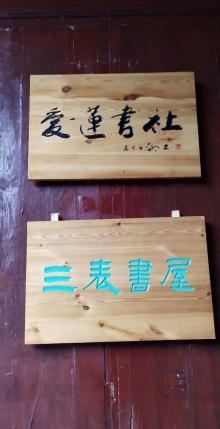 愛蓮書社
三表書屋